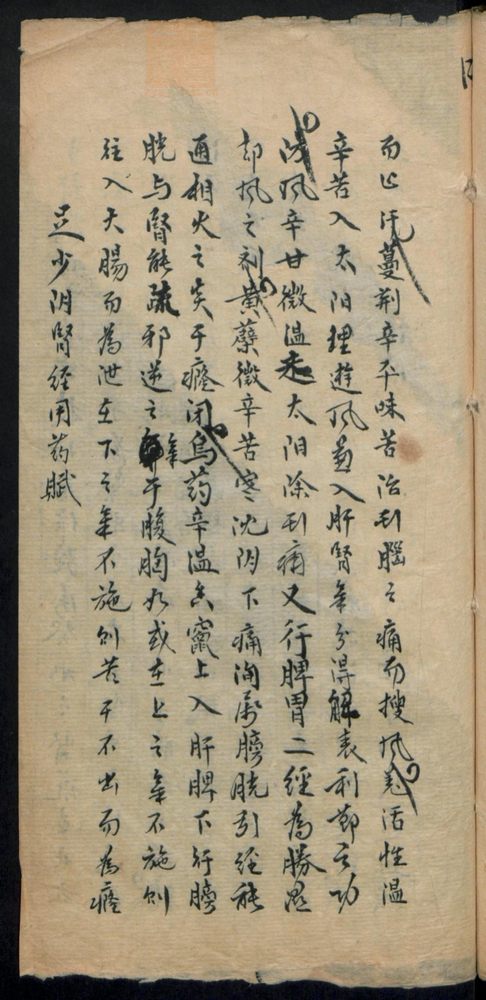 而止汗蔓荆辛平味苦治刮腦之痛而搜风羌活性温
辛苦入太阳理遊风兼入肝腎氣分得解表利節之功
防风辛甘微温走太阳除刮痛又行脾胃二經為勝湿
却风之剂黄蘗微辛苦寒沈阴下痛淘為膀胱引經能
通相火之炎于癃闭烏药辛温香竄上入肝脾下行膀
胱与腎能疏邪逆之氣于腹胸如或在上之氣不施则
往入大腸而為泄在下之氣不施则苦于不出而為癃
足少阴腎经用药赋